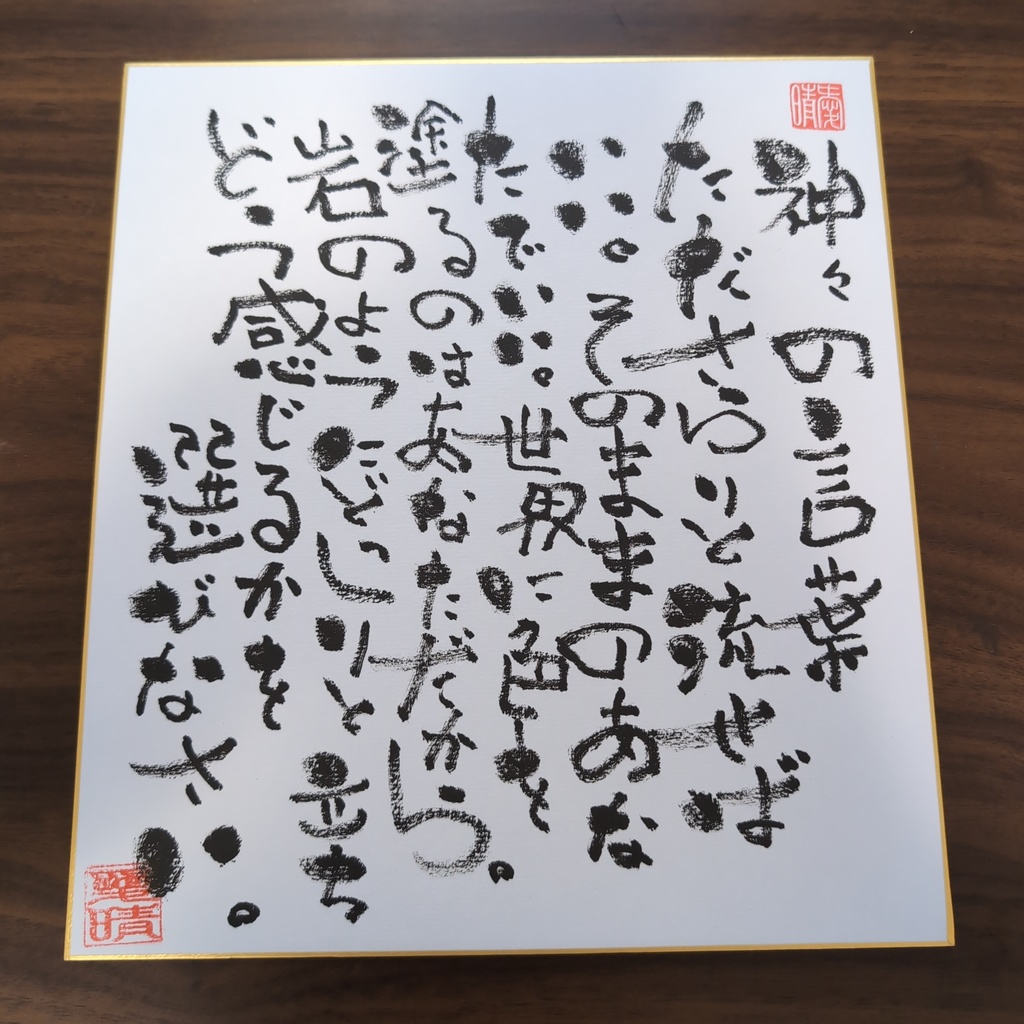 神々の言葉
たださらりと流せば
いい。そのままのあな
たでいい。世界に色を
塗るのはあなただから。
岩のようにどっしりと立ち
どう感じるかを
選びなさい。